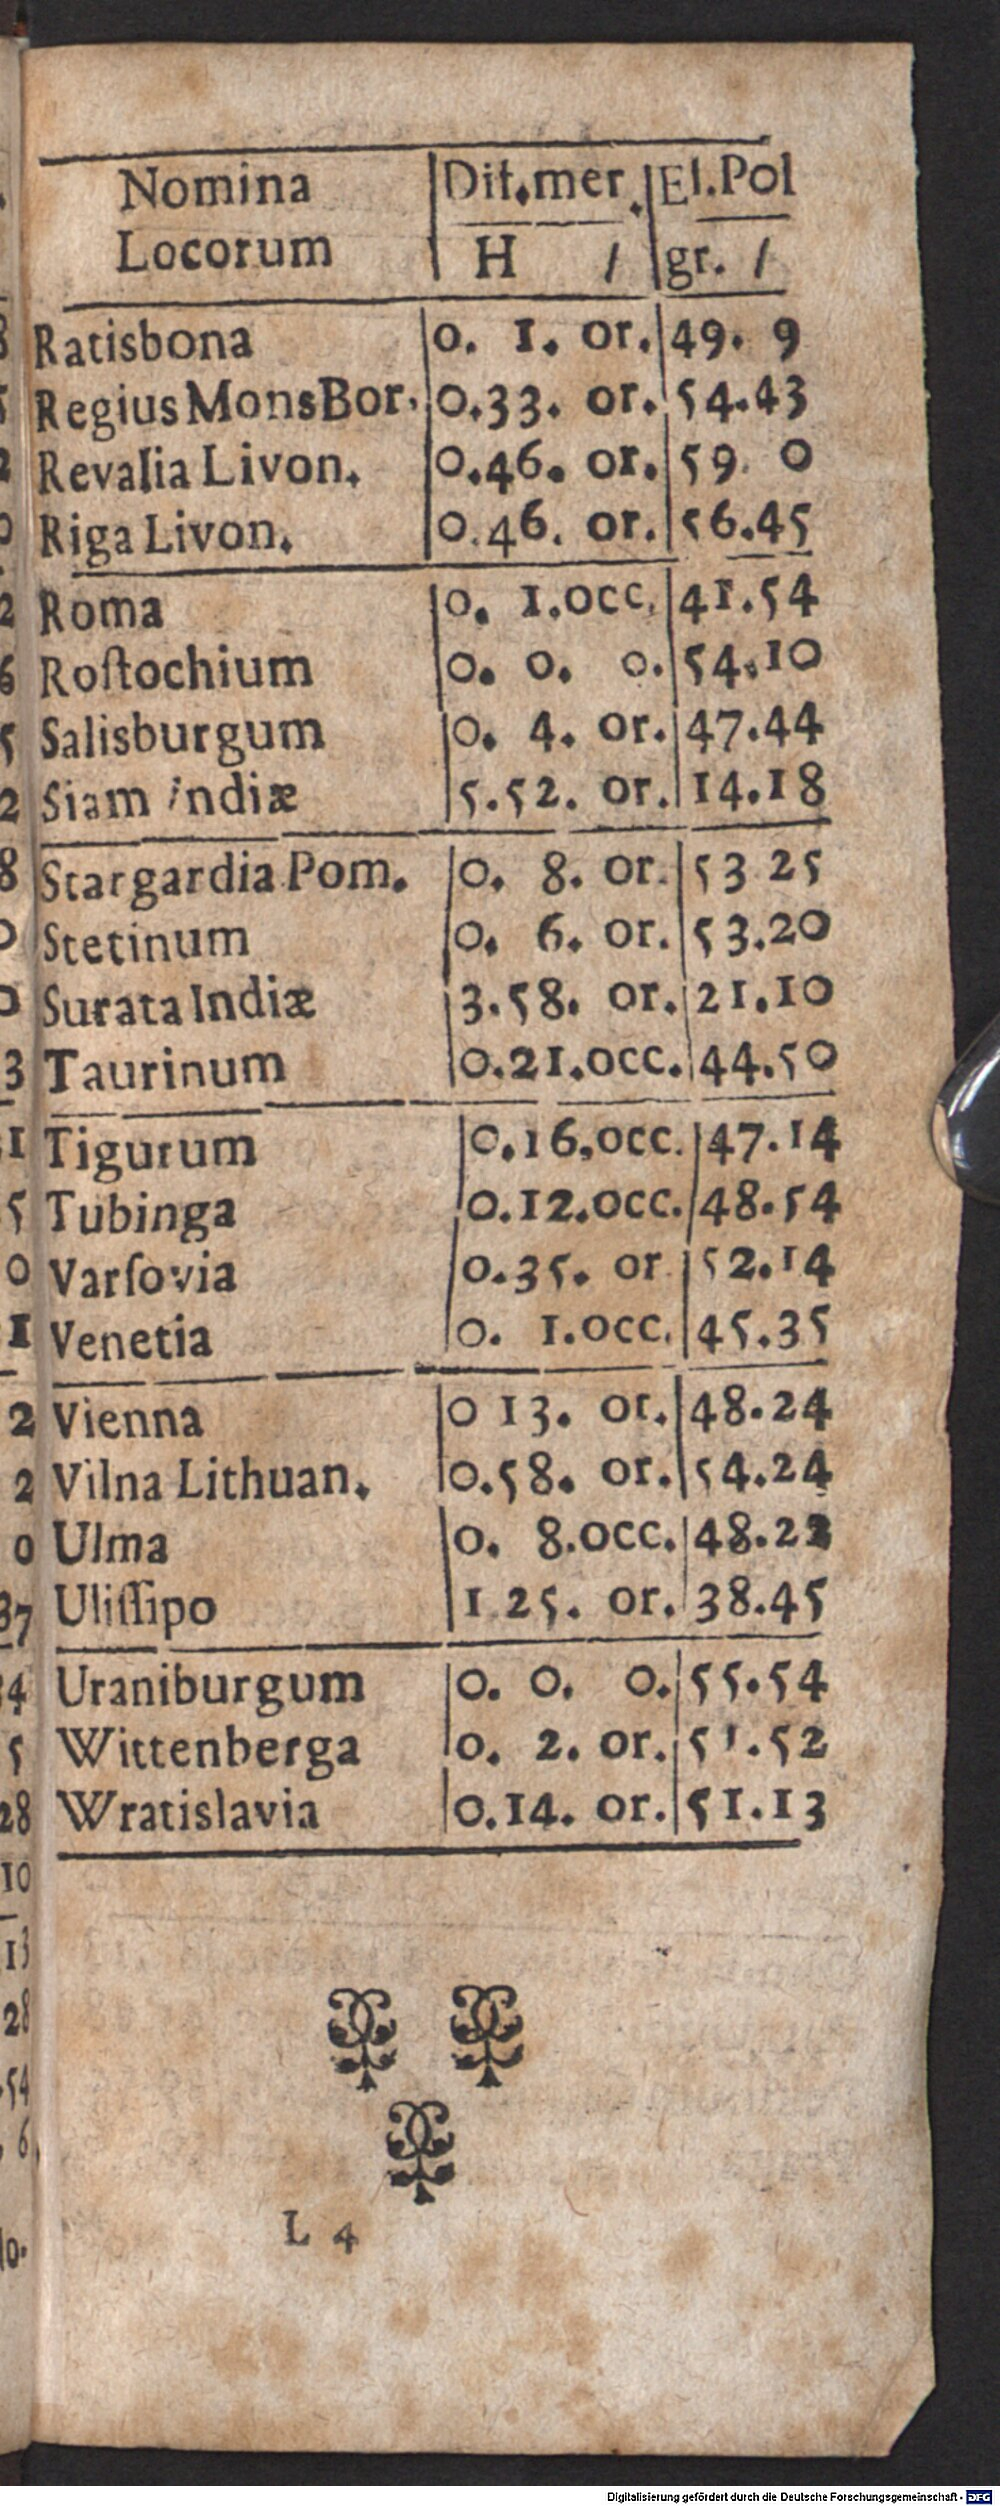 Nomina Dif.mer. El.Pol
Locorum H / gr. /
Ratisbona 0. 1. or. 49. 9
Regius Mons Bor. 0.33. or. 54.43
Revalia Livon. 0.46. or. 59. 0
Riga Livon. 0.46. or. 56.45
Roma 0. 1.occ. 41.54
Roſtochium 0. 0. 0. 54.10
Salisburgum 0. 4. or. 47.44
Siam Indiæ 5.52. or. 14.18
Stargardia Pom. 0. 8. or. 53 25
Stetinum 0. 6. or. 53.20
Surata Indiæ 3.58. or. 21.10
Taurinum 0.21.occ. 44.50
Tigurum 0.16.occ. 47.14
Tubinga 0.12.occ. 48.54
Varſovia 0.35. or 52.14
Venetia 0. 1.occ. 45.35
Vienna 0 13. or. 48.24
Vilna Lithuan. 0.58. or. 54.24
Ulma 0. 8.occ.
Uliſſipo 1 25. or. 38.45
Uraniburgum 0. 0. 0. 55.54
Wittenberga 0. 2. or. 51.52
Wratislavia 0.14. or. 51.13
L 4
Digitalisierung gefördert durch die Deutsche Forschungsgemeinschaft - DFG